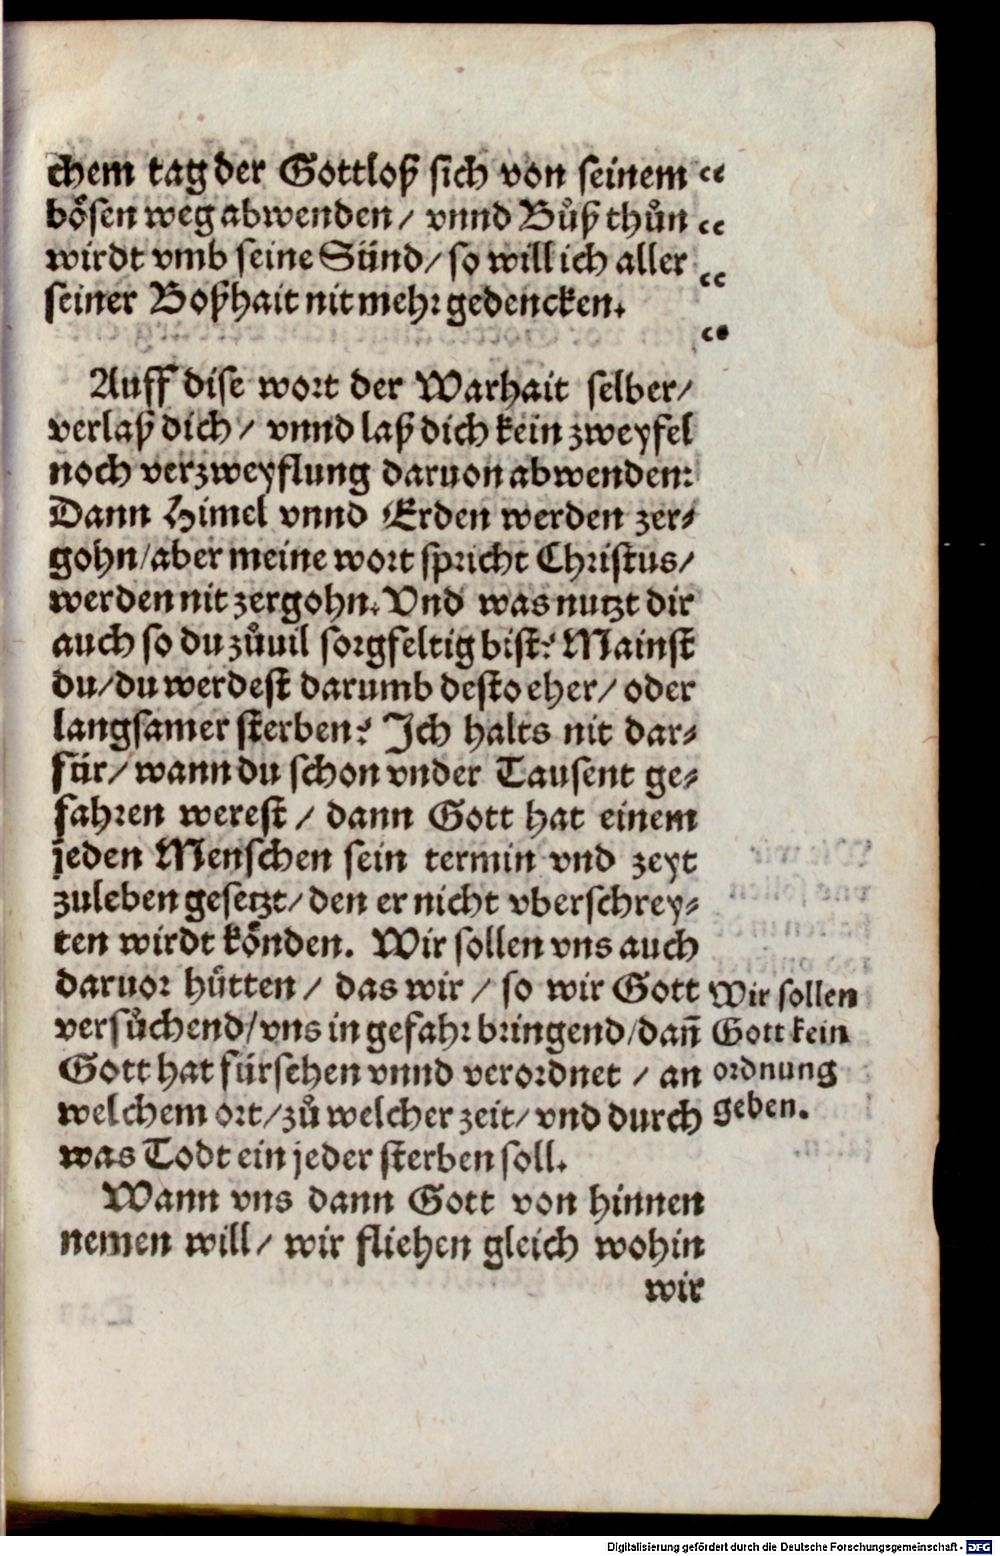 chem tag der Gottloß sich von seinem
bösen weg abwenden / vnnd Bůß thůn
wirdt vmb seine Sünd / so will ich aller
seiner Boßhait nit mehr gedencken.
Auff dise wort der Warhait selber /
verlaß dich / vnnd laß dich kein zweyfel
noch verzweyflung daruon abwenden:
Dann Himel vnnd Erden werden zer-
gohn / aber meine wort spricht Christus /
werden nit zergohn. Vnd was nutzt dir
auch so du zůuil sorgfeltig bist? Mainst
du / du werdest darumb desto eher / oder
langsamer sterben? Ich halts nit dar-
für / wann du schon vnder Tausent ge-
fahren werest / dann Gott hat einem
jeden Menschen sein termin vnd zeyt
zuleben gesetzt / den er nicht vberschrey-
ten wirdt könden. Wir sollen vns auch
daruor hütten / das wir / so wir Gott
versůchend / vns in gefahr bringend / dañ
Gott hat fürsehen vnnd verordnet / an
welchem ort / zů welcher zeit / vnd durch
was Todt ein jeder sterben soll.
Wir sollen
Gott kein
ordnung
geben.
Wann vns dann Gott von hinnen
nemen will / wir fliehen gleich wohin
wir
Digitalisierung gefördert durch die Deutsche Forschungsgemeinschaft - DFG